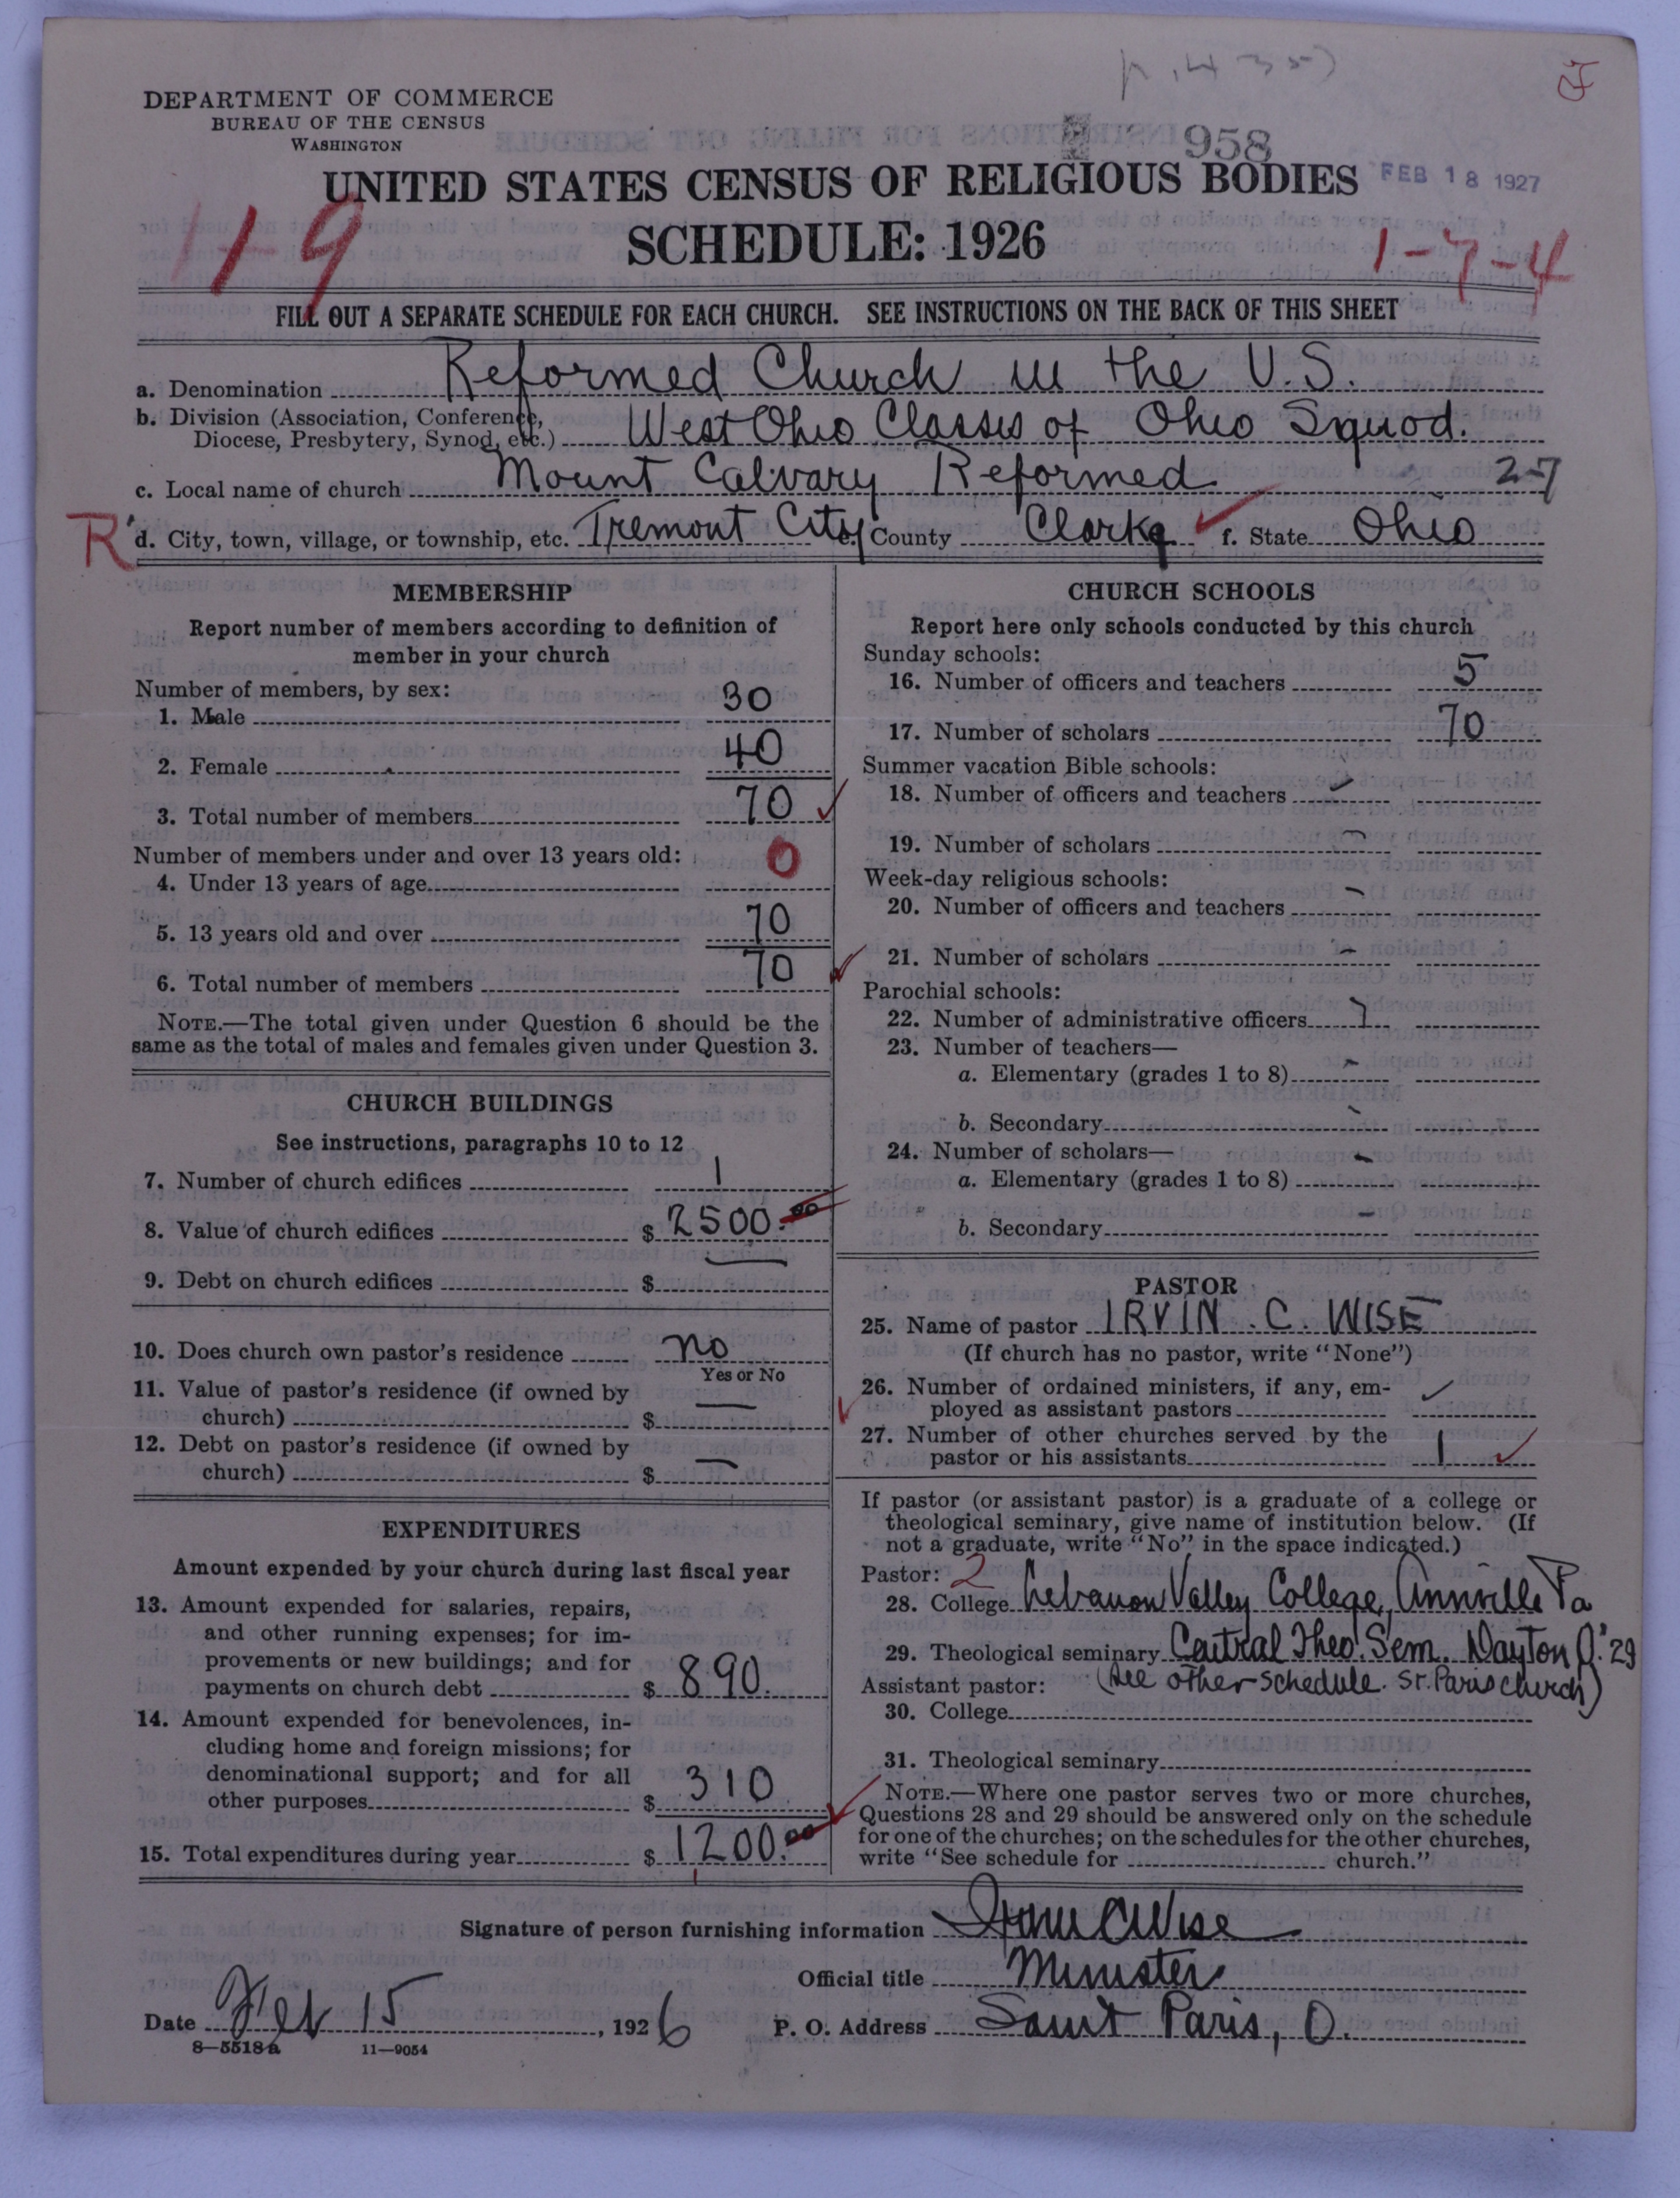 DEPARTMENT OF COMMERCE
BUREAU OF THE CENSUS
WASHINGTON
958
UNITED STATES CENSUS OF RELIGIOUS BODIES
FEB 18 1927
SCHEDULE: 1926
119
1-7-4
FILL OUT A SEPARATE SCHEDULE FOR EACH CHURCH. SEE INSTRUCTIONS ON THE BACK OF THIS SHEET
a. Denomination Reformed Church in the U.S.
b. Division (Association, Conference, Diocese, Presbytery, Synod, etc.) West Ohio Classis of Ohio Synod.
c. Local name of church Mount Calvary Reformed 27
R d. City, town, village, or township, etc. Tremont City e. County Clark f. State Ohio
MEMBERSHIP
Report number of members according to definition of
member in your church
Number of members, by sex:
1. Male 30
2. Female 40
3. Total number of members 70
Number of members under and over 13 years old:
4. Under 13 years of age 0
5. 13 years old and over 70
6. Total number of members 70
NOTE.—The total given under Question 6 should be the
same as the total of males and females given under Question 3.
CHURCH BUILDINGS
See instructions, paragraphs 10 to 12
7. Number of church edifices 1
8. Value of church edifices $ 2500.00
9. Debt on church edifices $ —
10. Does church own pastor's residence no
Yes or No
11. Value of pastor's residence (if owned by
church) $ —
12. Debt on pastor's residence (if owned by
church) $ —
EXPENDITURES
Amount expended by your church during last fiscal year
13. Amount expended for salaries, repairs,
and other running expenses; for im-
provements or new buildings; and for
payments on church debt $ 890.
14. Amount expended for benevolences, in-
cluding home and foreign missions; for
denominational support; and for all
other purposes $ 310
15. Total expenditures during year $ 1200.00
CHURCH SCHOOLS
Report here only schools conducted by this church
Sunday schools:
16. Number of officers and teachers 5
17. Number of scholars 70
Summer vacation Bible schools:
18. Number of officers and teachers
19. Number of scholars —
Week-day religious schools:
20. Number of officers and teachers —
21. Number of scholars —
Parochial schools:
22. Number of administrative officers
23. Number of teachers—
a. Elementary (grades 1 to 8) -
b. Secondary -
24. Number of scholars—
a. Elementary (grades 1 to 8) -
b. Secondary -
PASTOR
25. Name of pastor IRVIN. C. WISE
(If church has no pastor, write "None")
26. Number of ordained ministers, if any, em-
ployed as assistant pastors
27. Number of other churches served by the
pastor or his assistants 1
If pastor (or assistant pastor) is a graduate of a college or
theological seminary, give name of institution below. (If
not a graduate, write "No" in the space indicated.)
Pastor: 2
28. College Lebanon Valley College, Annville Pa
29. Theological seminary Central Theo. Sem. Dayton O. '29
Assistant pastor: (See other schedule. St. Paris church)
30. College
31. Theological seminary
NOTE.—Where one pastor serves two or more churches,
Questions 28 and 29 should be answered only on the schedule
for one of the churches; on the schedules for the other churches,
write "See schedule for church."
Signature of person furnishing information Irvin C Wise
Official title Minister
Date Feb 15, 1926 P. O. Address Saint Paris, O.
8—5518 a 11—9054